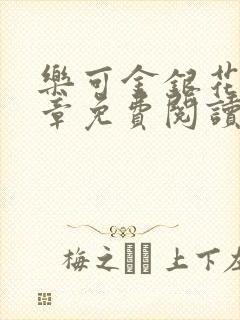 樂可金銀花
章免費閱讀
梅之 上下左